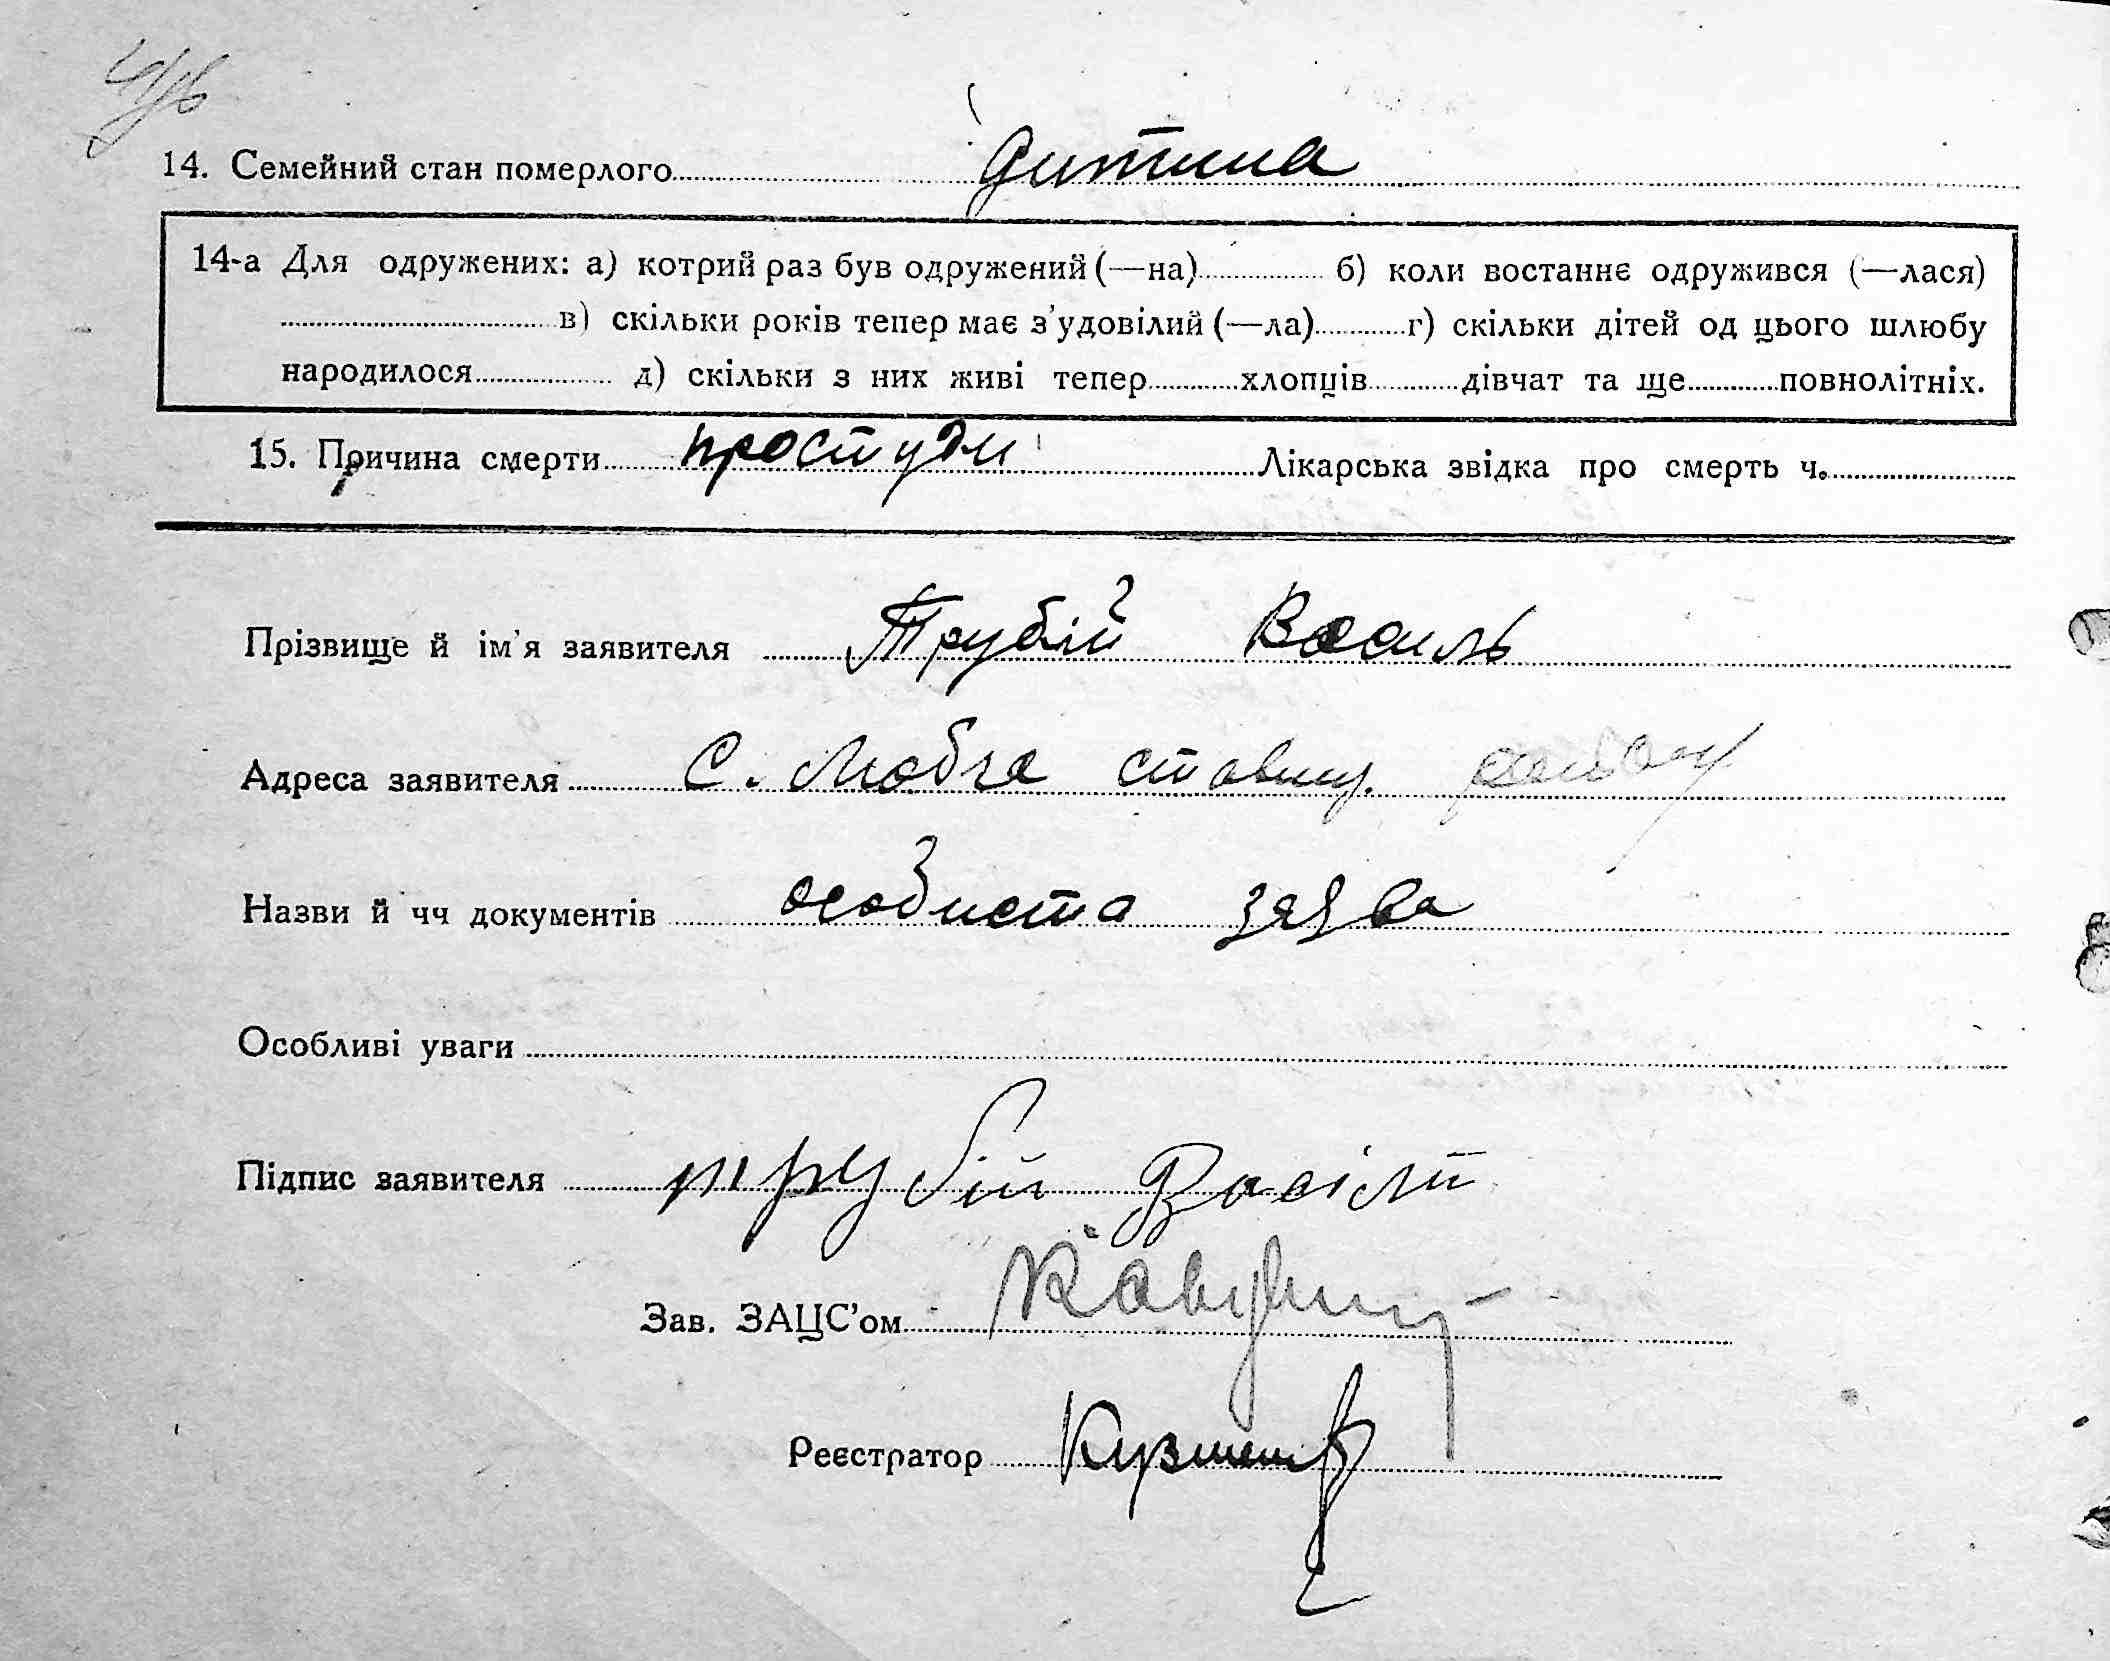 14. Семейний стан померлого дитина
14-а Для одружених: а) котрий раз був одружений (—на) б) коли востаннє одружився (—лася)
в) скільки років тепер має з’удовілий (—ла) г) скільки дітей од цього шлюбу
народилося д) скільки з них живі тепер хлопців дівчат та ще повнолітніх.
15. Причина смерти простуди Лікарська звідка про смерть ч.
Прізвище й ім’я заявителя Трубій Василь
Адреса заявителя с. Любча ставищ. району
Назви й чч документів особиста заява
Особливі уваги
Підпис заявителя трубій Васіль
Зав. ЗАЦС’ом
Реєстратор